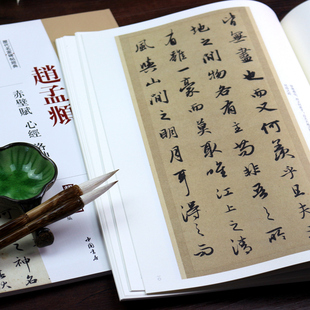 趙孟頫
赤壁賦 心經 洛
中国书店
之神名
皆無盡也而又何羨乎且夫
地之間物各有主苟非吾之所
有雖一豪而莫取唯江上之清
風與山間之明月耳得之而